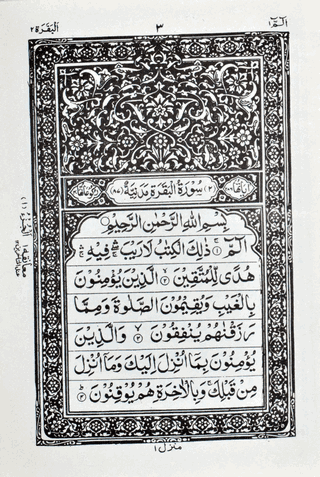 الٓمّٓ ١
٣
البقرة ٢
(٢) سورة البقرة مدنية (٨٧)
بسم الله الرحمن الرحيم
الٓمّٓ ۚ ذٰلك الكتٰب لا ريب ۛ فيه ۛ
هدى للمتقين ۙ الذين يؤمنون
بالغيب ويقيمون الصلوة ومما
رزقنٰهم ينفقون ۙ والذين
يؤمنون بما أنزل إليك وما أنزل
من قبلك ۚ وبالأخرة هم يوقنون
منزل ١